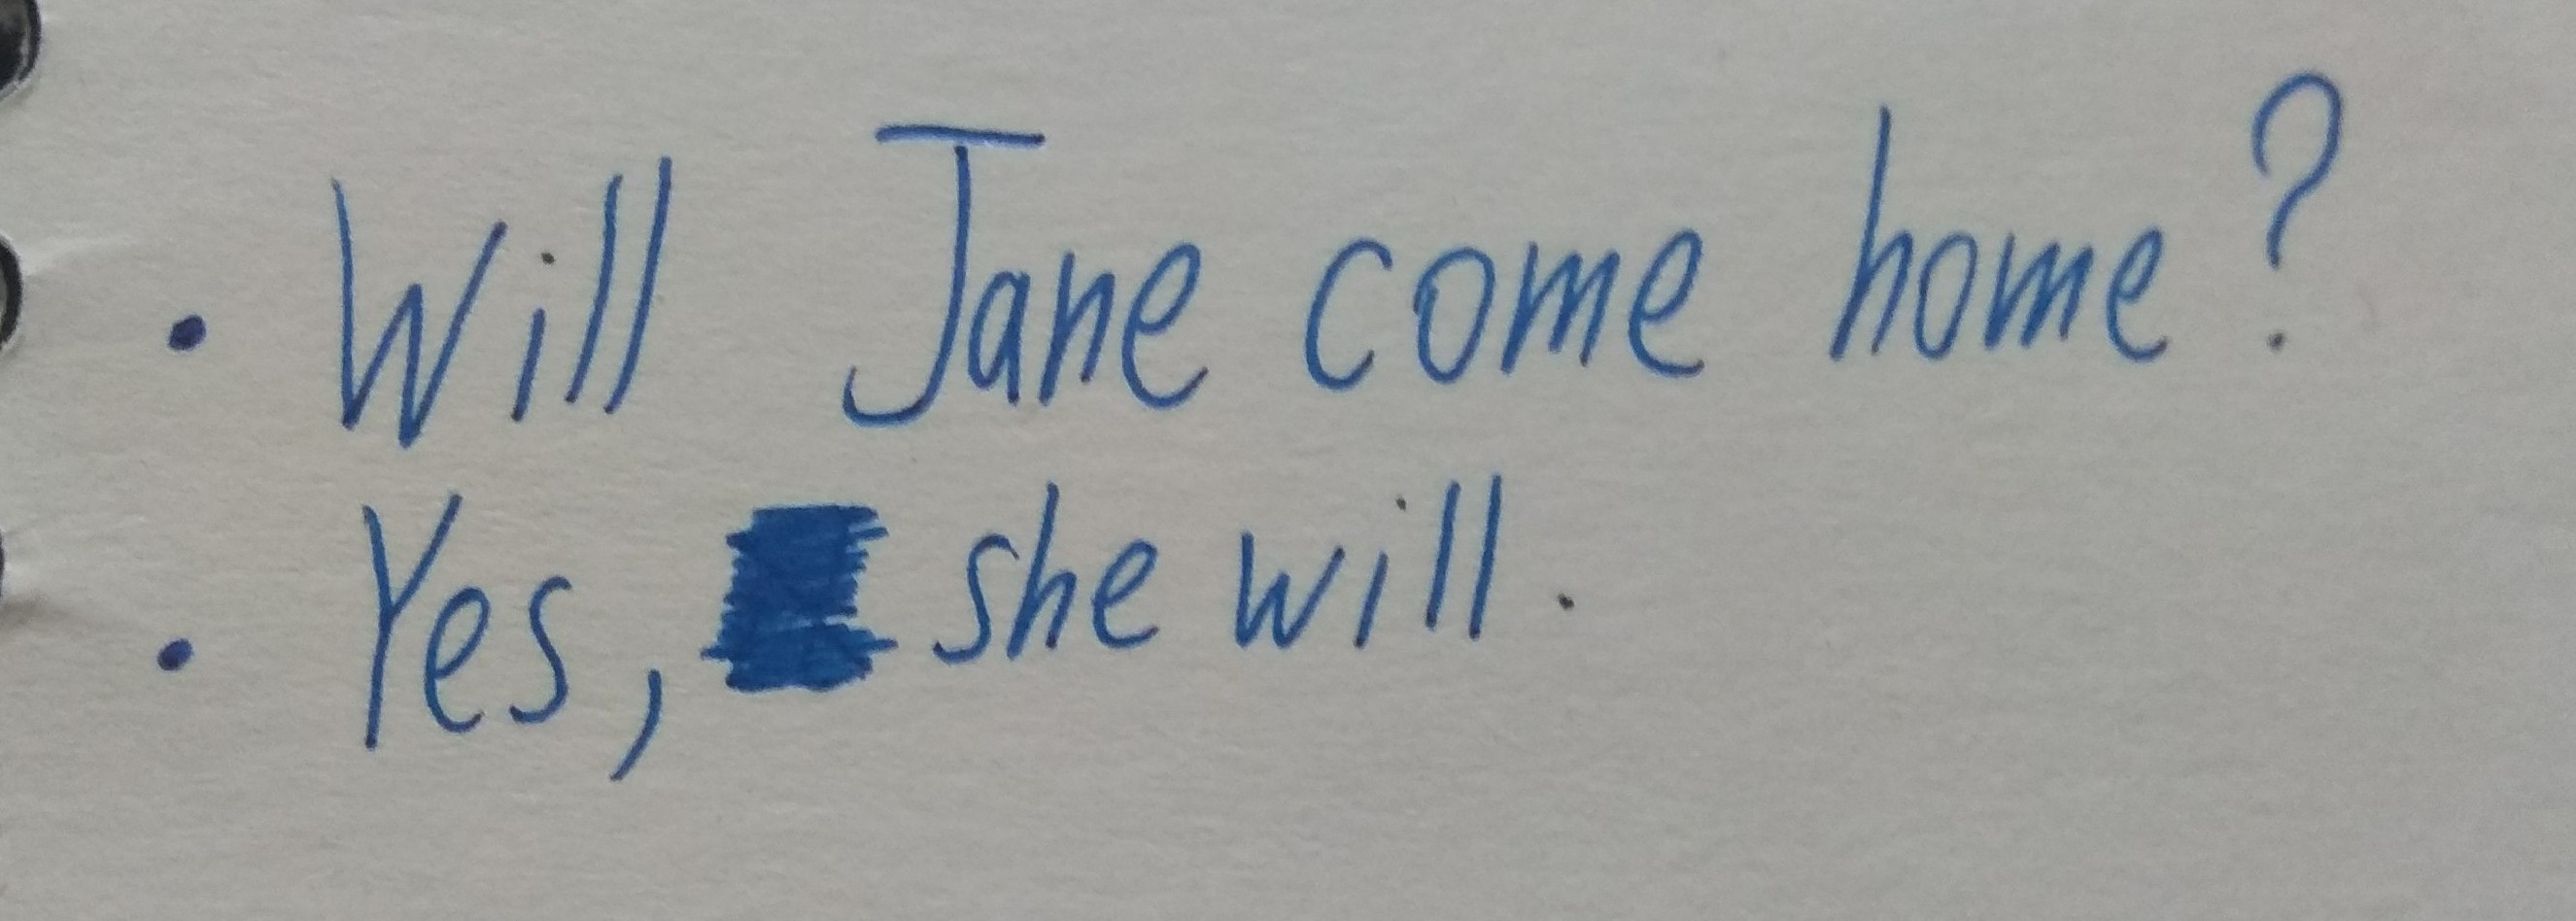 • Will Jane come home?
• Yes, she will.